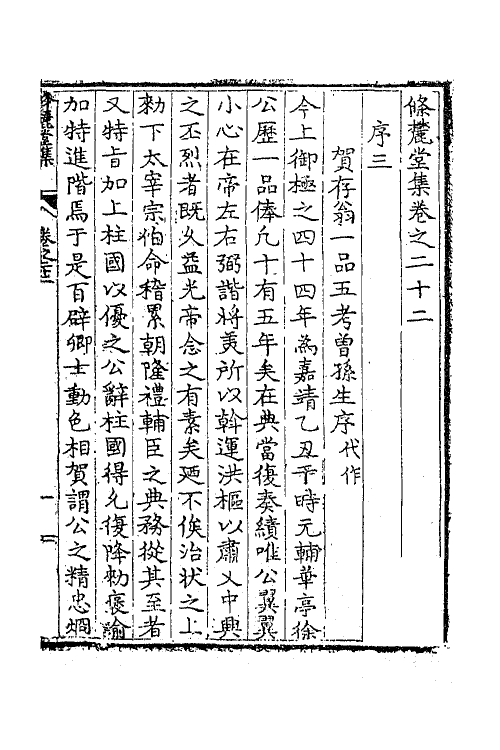 條麓堂集卷之二十二
序三
賀存翁一品五考曾孫生序代作
今上御極之四十四年為嘉靖乙丑平時元輔華亭徐
公歷一品俸凡十有五年矣在典當復奏績唯公翼翼
小心在帝左右弼諧將美所以斡運洪樞以肅乂中興
之丕烈者既久益光帝念之有素矣廼不俟治狀之上
勑下太宰宗伯命稽累朝隆禮輔臣之典務從其至者
又特旨加上柱國以優之公辭柱國得允復降勑褒諭
加特進階焉于是百辟卿士動色相賀謂公之精忠炯
條麓堂集
卷之二十二
一